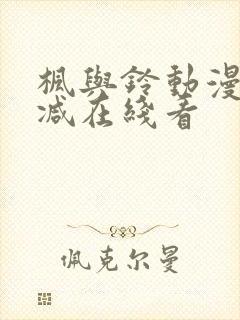 楓與鈴動漫
減在綫看
佩克尔曼